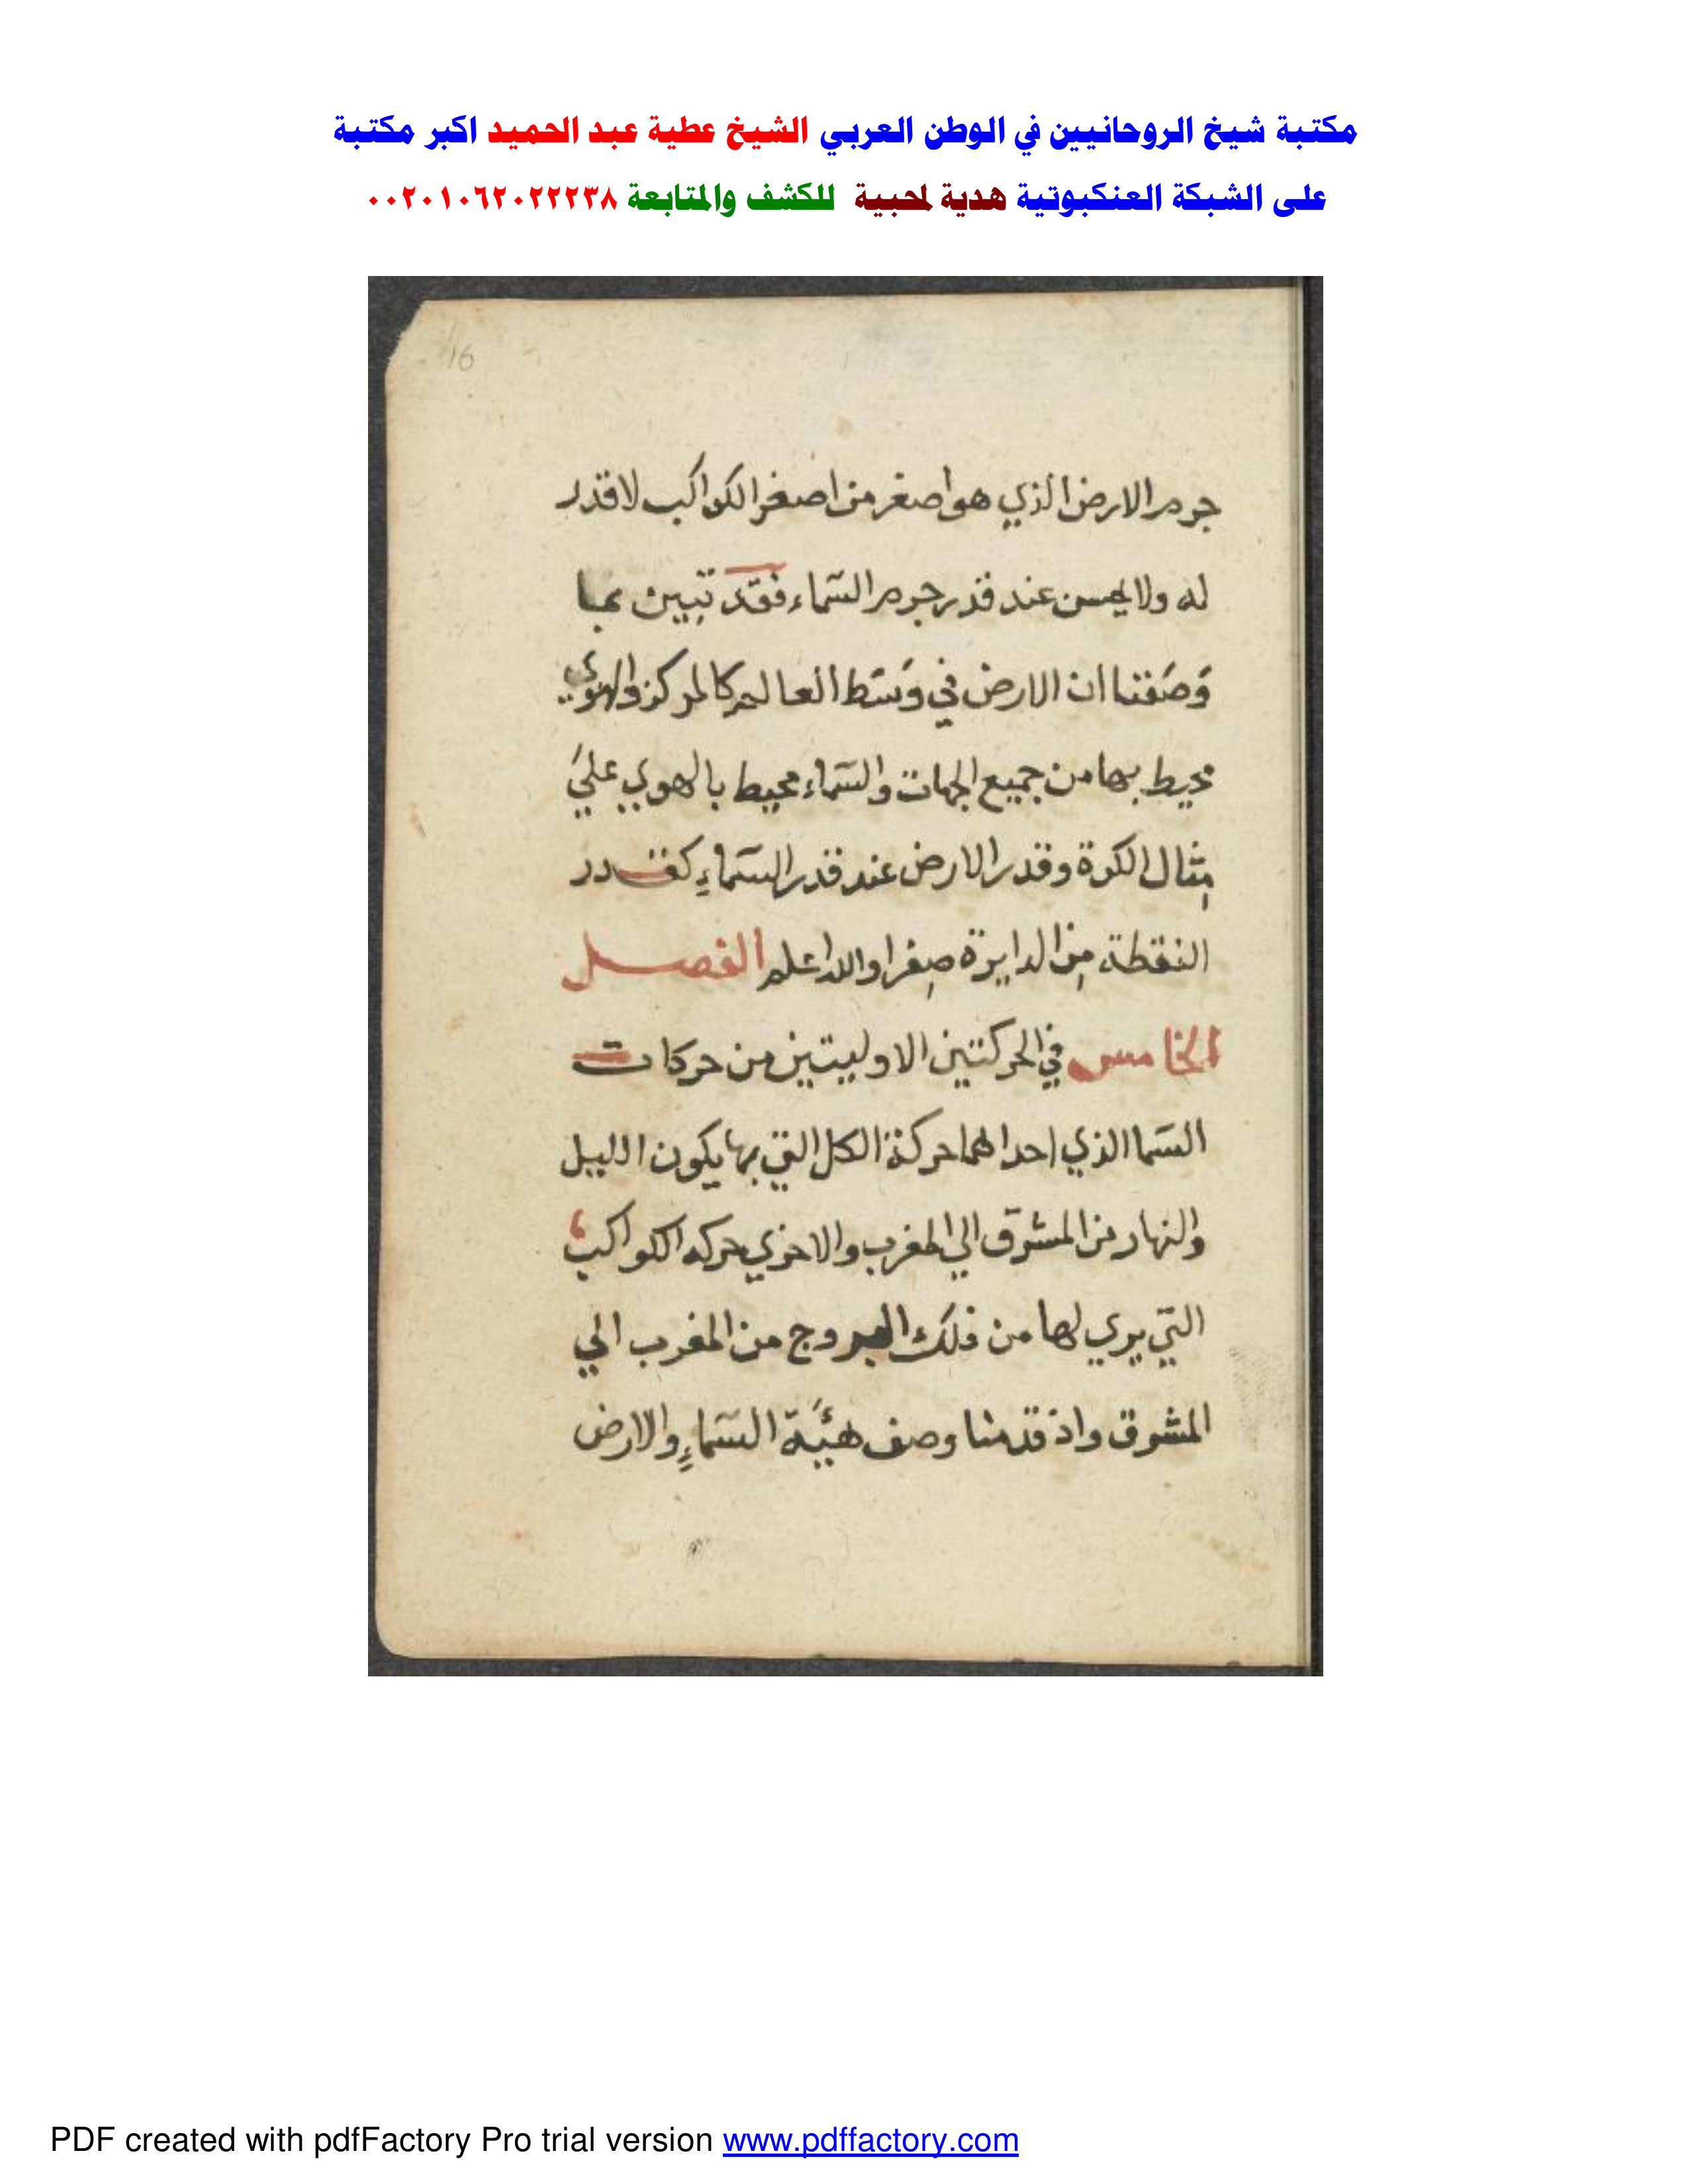 مكتبة شيخ الروحانيين في الوطن العربي الشيخ عطية عبد الحميد اكبر مكتبة
على الشبكة العنكبوتية هدية لمحبية للكشف والمتابعة ٠٠٢٠١٠٦٢٠٢٢٢٣٨
16
جرم الارض الذي هو اصغر من اصغر الكواكب لا قدر
له ولا يحس عند قدر جرم السّماء فقد تبين بما
وَصَفنا ان الارض في وَسَط العالم كالمركز والهوي
محيط بها من جميع الجهات والسّماء محيط بالهوي عليَ
مِثال الكرة وقدر الارض عند قدر السّماءِ كقدر
النقطة مِن الدايرة صِغرا والله اعلم الفصل
الخامس في الحركتين الاوليتين من حركات
السّما الذي احداهما حركة الكل التي بها يكون الليل
والنهار من المشرق الي المغرب والاخري حركه الكواكب
التي يري لها من فلك البروج من المغرب الي
المشرق واذ قدمنا وصف هيئَة السّماءِ والارض
PDF created with pdfFactory Pro trial version www.pdffactory.com